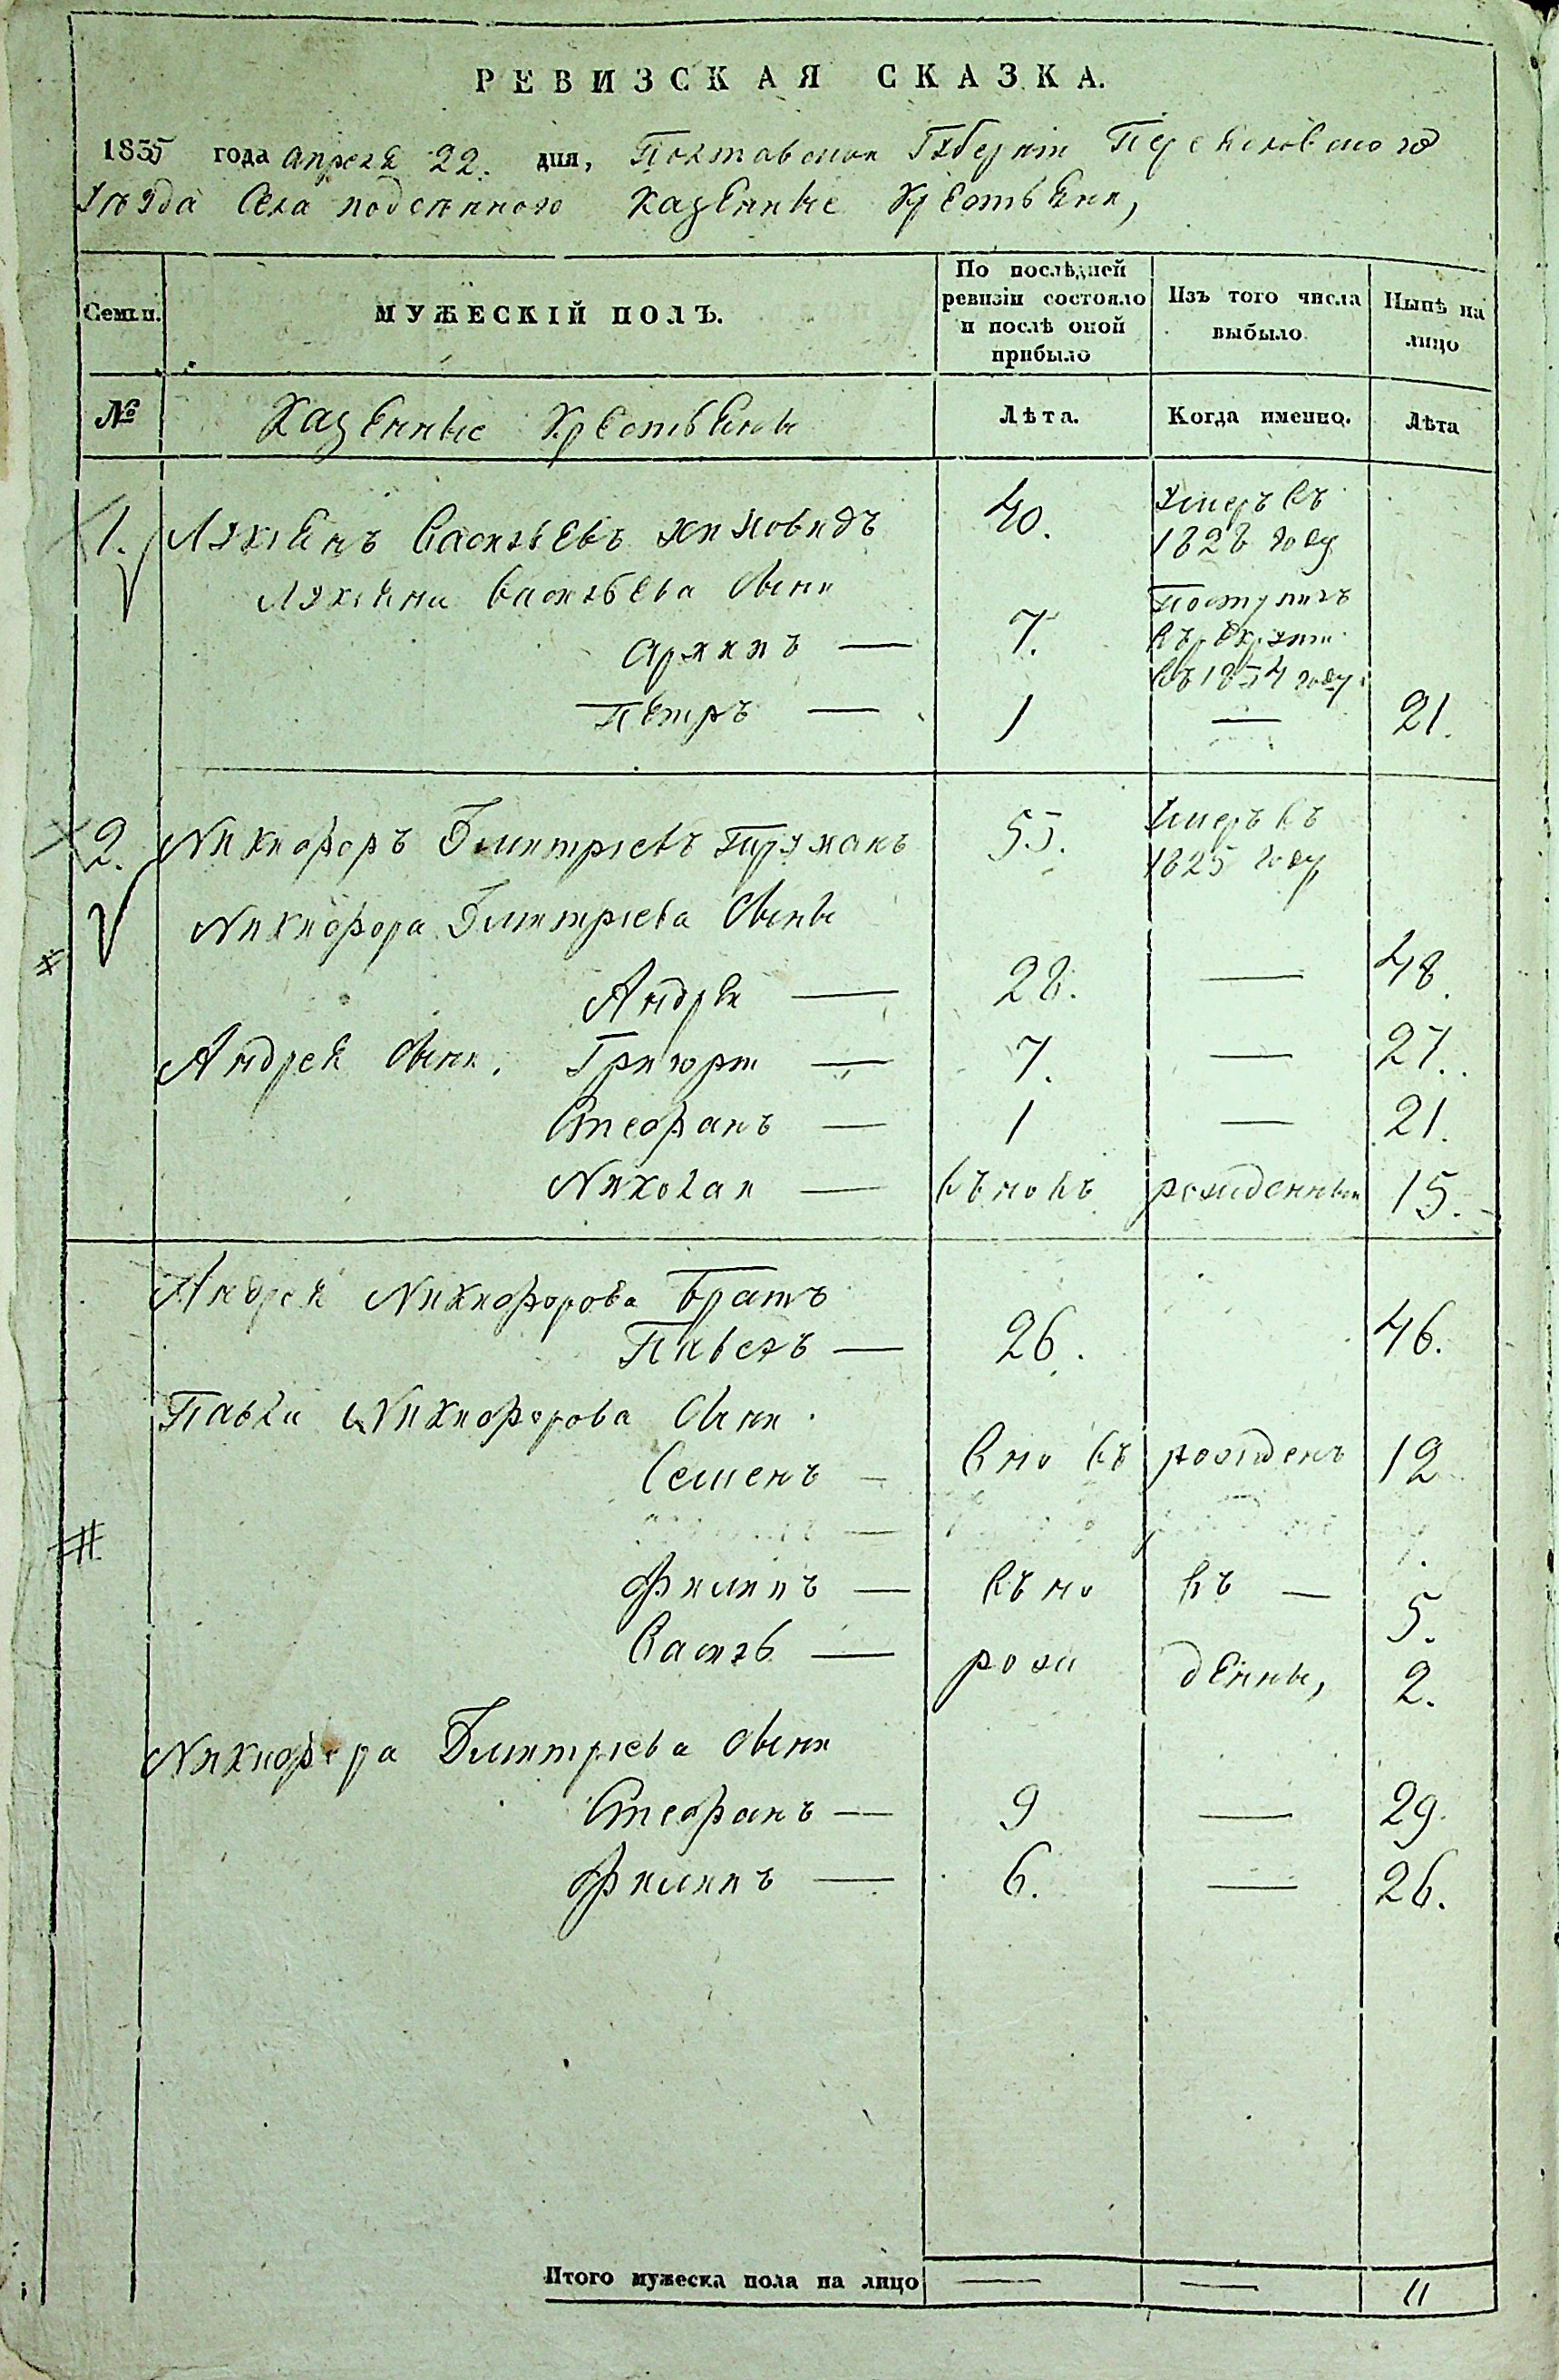 РЕВИЗСКАЯ СКАЗКА.
1835 года апреля 22. дня, Полтавской Губернии
уезда Села подсенного Казенные Крестьяни,
Семьи.
МУЖЕСКІЙ ПОЛЪ.
По послѣдней ревизіи состояло и послѣ оной прибыло
Изъ того числа выбыло
Нынѣ на лицо
№
Казенные Крестьяны
Лѣта.
Когда именно.
Лѣта
1. Лукъянъ Васильевъ 40. Умеръ въ
1828 году
Лукъяна Васильева сыни
Архипъ — 7. Поступилъ
въ рекруты
въ 1834 году
Петръ — 1 — 21.
2. Никифоръ Дмитріевъ 55. Умеръ въ
1825 году
Никифора Дмитріева сыны
Андрей — 28. — 48.
Андрея сыни. Григорій — 7. — 27.
Стефанъ — 1 — 21.
Николай — въновъ рожденный 15.
Андрея Никифорова братъ
Павелъ — 26. 46.
Павла Никифорова сыни.
Семенъ — вновъ рожденъ 12
Филипъ — въно въ — 5.
Василь — рож денны, 2.
Никифора Дмитріева сыни
Стефанъ — 9 — 29.
Филипъ — 6. — 26.
Итого мужеска пола на лицо — — 11